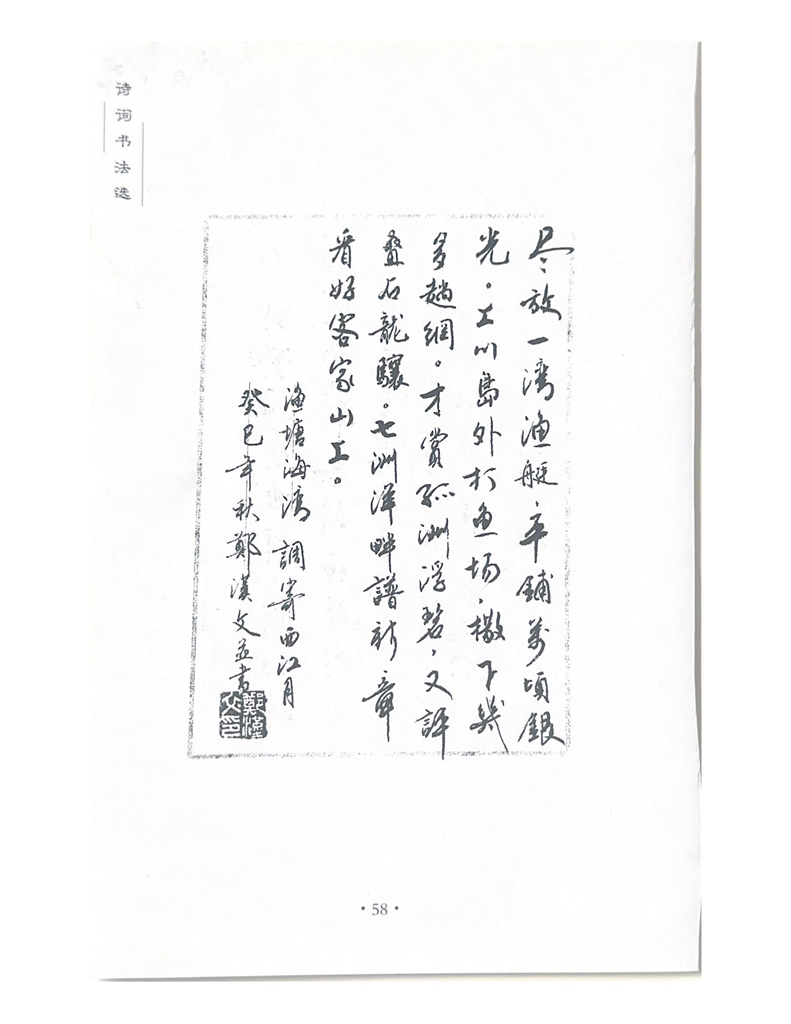 诗词书法选
尽放一湾渔艇，平铺萬頃銀
光。上川島外打魚场，撒下幾
多趟網。才赏孤洲浮碧，又評
叠石龍驤。七洲洋畔譜新章
看好客家山上。
渔塘海湾 調寄西江月
癸巳年秋鄭漢文並書
鄭漢文印
·58·